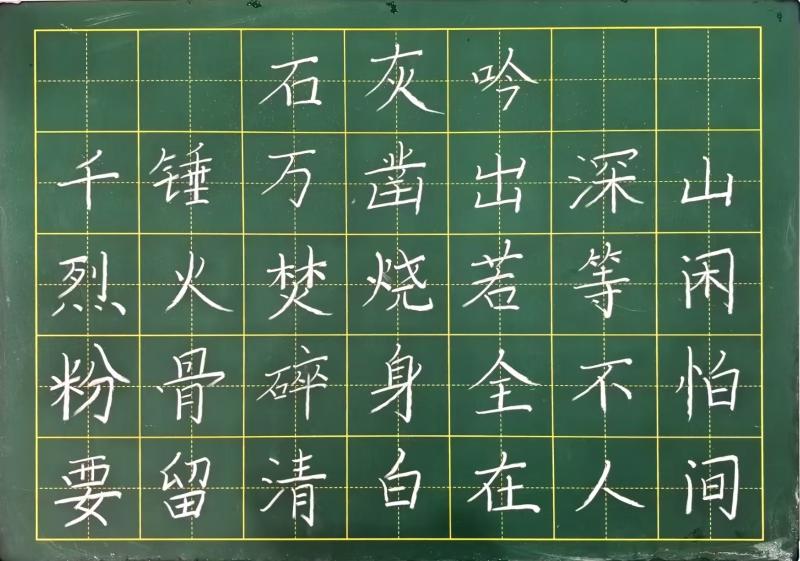 石灰吟
千锤万凿出深山
烈火焚烧若等闲
粉骨碎身全不怕
要留清白在人间